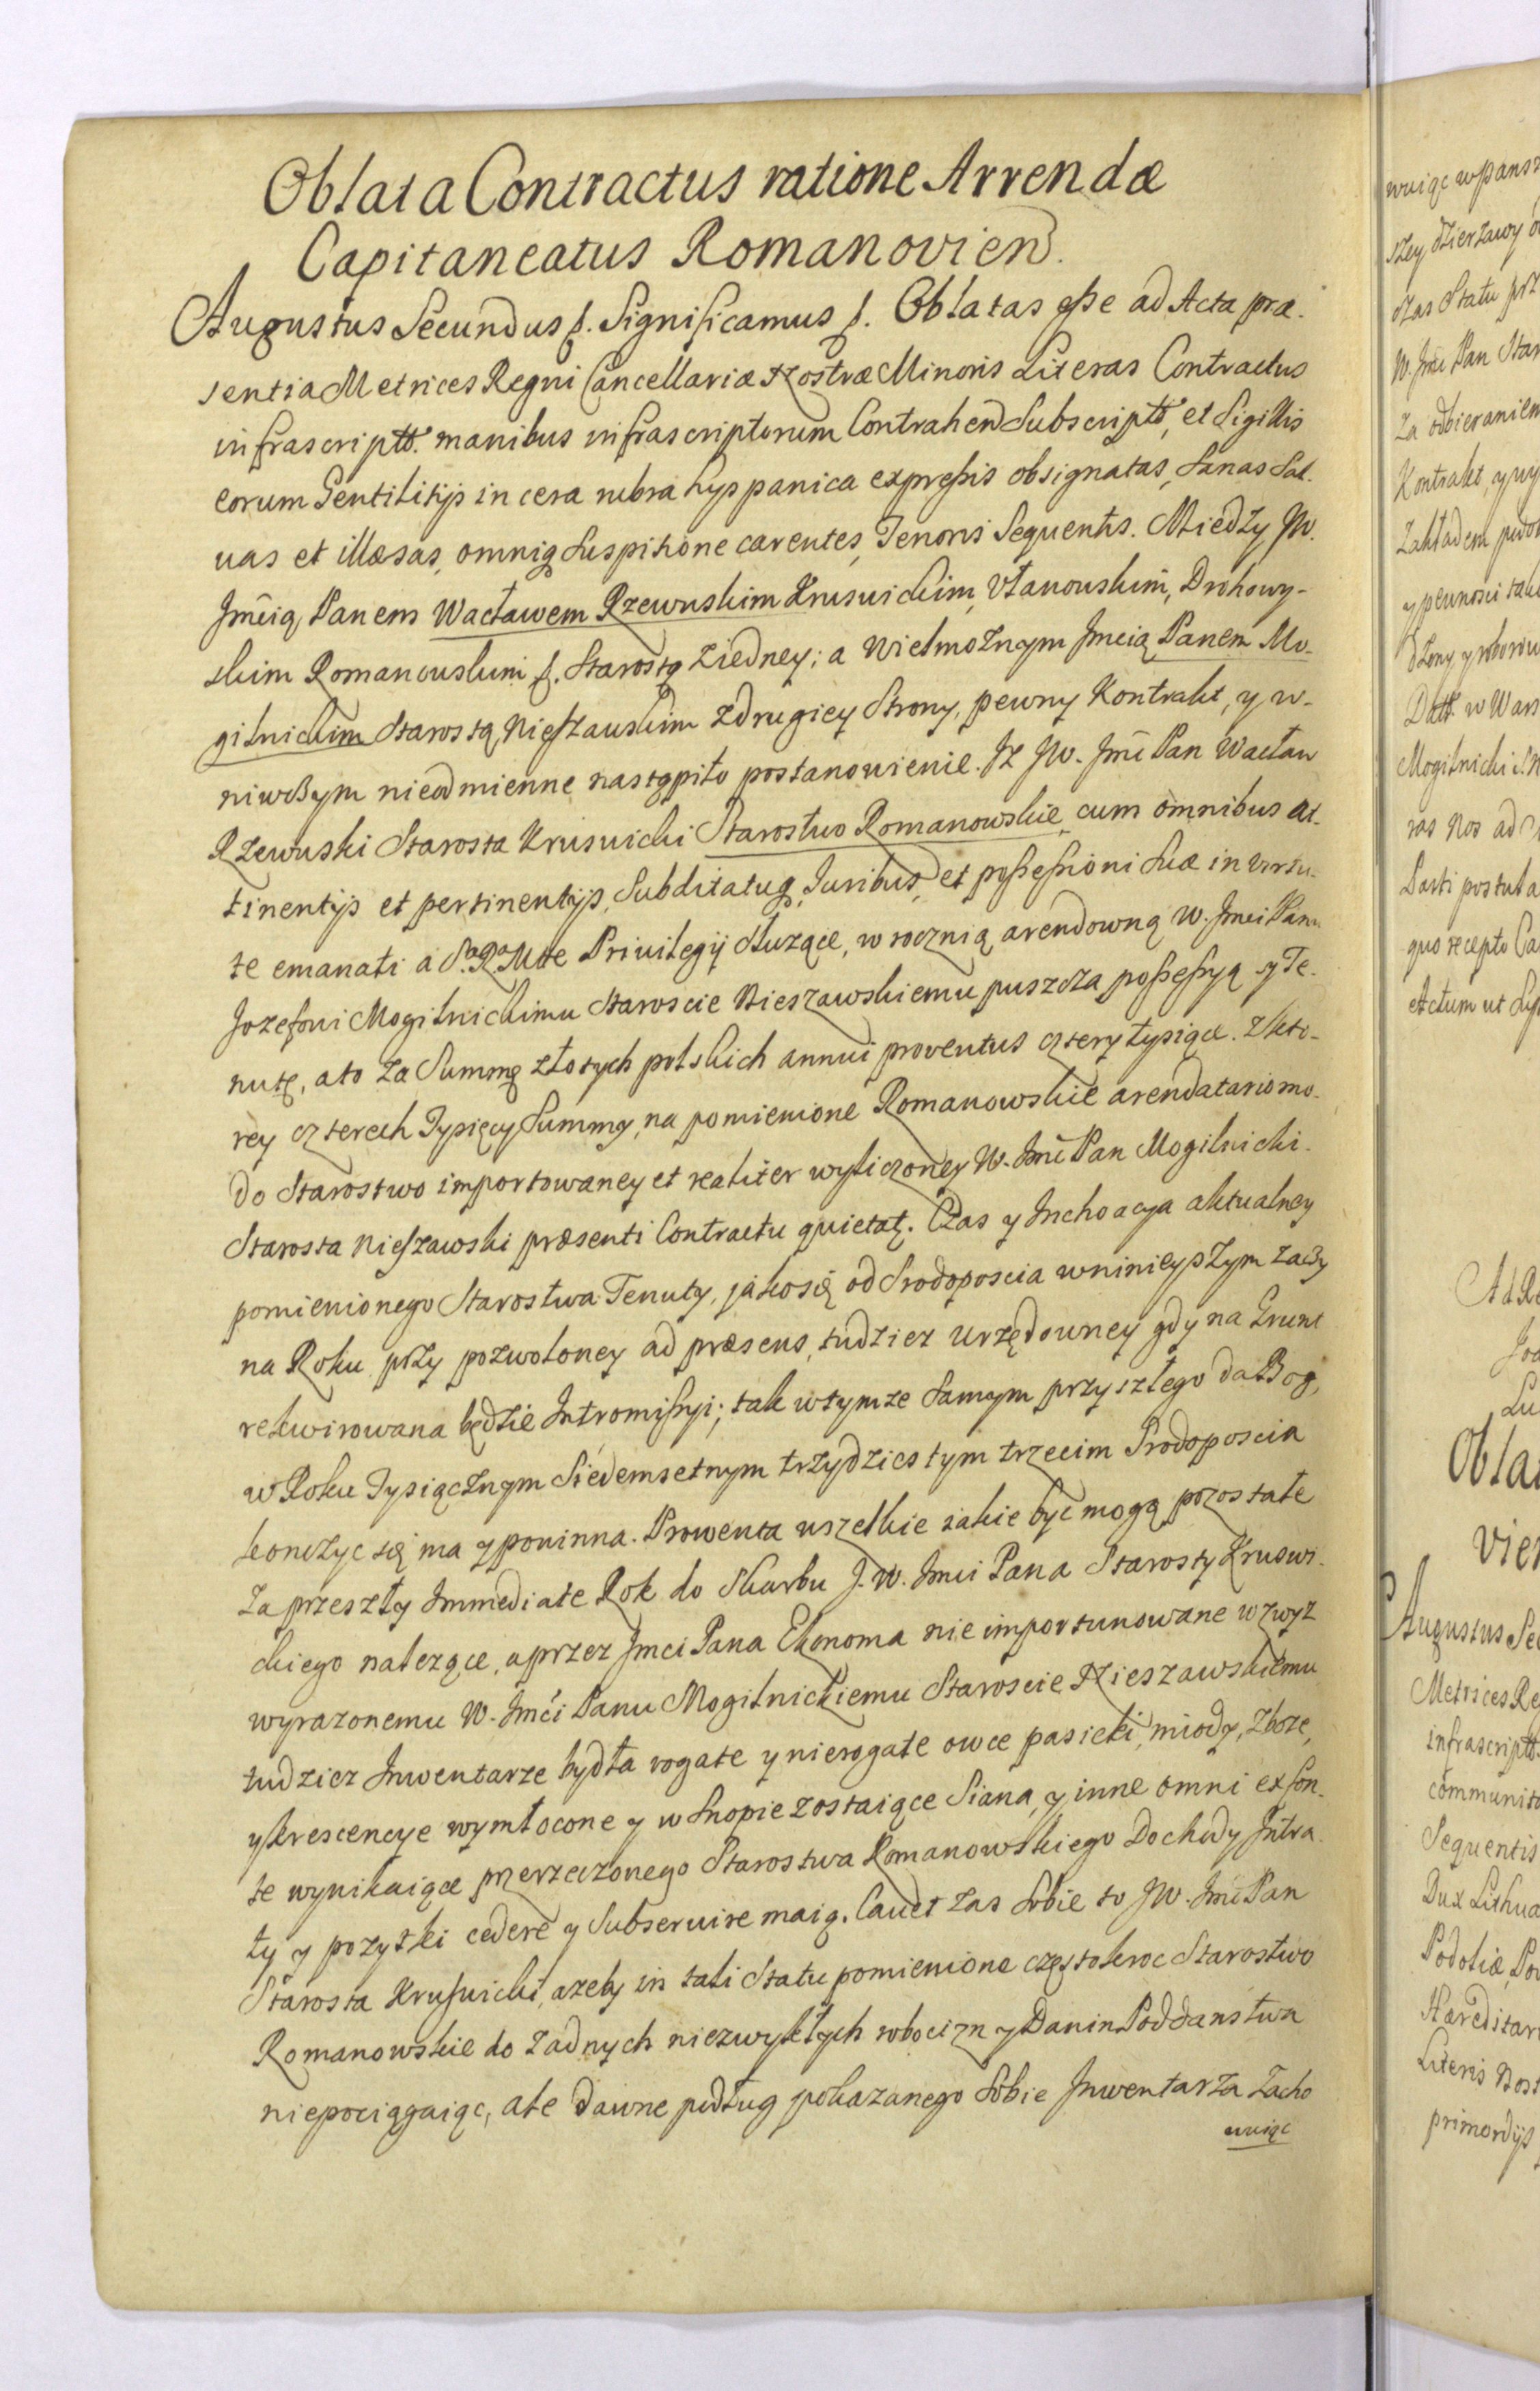 Oblata Contractus ratione Arrendæ
Capitaneatus Romanovien.
Augustus Secundus f. Significamus f. Oblatas esse ad Acta præ-
sentia Metrices Regni Cancellariæ Nostræ Minoris Literas Contractus
infrascriptt. manibus infrascriptorum Contrahen Subscriptt, et Sigillis
eorum Gentilitijs in cera rubra hyspanica expressis obsignatas, Sanas Sal-
vas et illæsas, omniq suspitione carentes, Tenoris Sequentis. Miedzy JW.
Jmcią Panem Wacławem Rzewuskim Kruswickim, Ułanowskim, Drohowy-
skim Romanowskim f. Starostą z iedney; a Wielmożnym Jmcią Panem Mo-
gilnickim Starostą Nieszawskim z drugiey Strony, pewny Kontrakt, y w-
niwczym nieodmienne nastąpiło postanowienie. Iż JW. Jmć Pan Wacław
Rzewuski Starosta Kruswicki Starostwo Romanowskie, cum omnibus at-
tinentijs et pertinentijs, Subditatuq, Juribus, et possessioni Suæ in virtu-
te emanati a S. R. Mtte Privilegij służące, w roczną arendowną W. Jmci Panu
Jozefowi Mogilnickimu Staroscie Nieszawskiemu puszcza possessyą y Te-
nutę, a to za Summę złotych polskich annui proventus cztery tysiące. Z kto-
rey czterech Tysięcy Summy, na pomienione Romanowskie arendatario mo-
do Starostwo importowaney et realiter wyliczoney W. Jmć Pan Mogilnicki
Starosta Nieszawski præsenti Contractu quietat. Czas y Inchoacya aktualney
pomienionego Starostwa Tenuty, jako się od Srodoposcia w ninieyszym zaczy
na Roku przy pozwoloney ad præsens, tudziez urzędowney gdy na Grunt
rekwirowana będzie Intromissyi; tak w tymze Samym przyszłego da Bog,
w Roku Tysiącznym Siedemsetnym trzydziestym trzecim Srodoposcia
konczyc się ma y powinna. Prowenta wszelkie iakie być mogą pozostałe
za przeszły Immediate Rok do Skarbu J. W. Jmci Pana Starosty Kruswi-
ckiego nalezące, a przez Jmci Pana Ekonoma nie importunowane wzwyz
wyrazonemu W. Jmći Panu Mogilnickiemu Staroscie Nieszawskiemu
tudziez Inwentarze bydła rogate y nierogate owce pasieki, miody, zboze,
y krescencye wymłocone y w Snopie zostaiące Siana, y inne omni ex fon-
te wynikaiące przerzeczonego Starostwa Romanowskiego Dochody Intra-
ty y pozytki cedere y Subservire maią. Cavet zas Sobie to JW. Jmć Pan
Starosta Kruswicki, azeby in tali Statu pomienione częstokroc Starostwo
Romanowskie do zadnych niezwykłych robocizn y Danin Poddanstwa
niepociągaiąc, ale dawne podług pokazanego Sobie Inwentarza zacho
wuiąc
wuiąc w
szey dzierzawy
czas Statu prz
W. Jmć Pan Star
za odbieraniem
Kontrakt, y
Zakładem
y pewnosci
Datt. w Wars
Mogilnicki
ras Nos ad
Parti postula
quo recepto Ca
Actum ut Sup
Ad Re
Joa
Lu
Obla
vien
Augustus Se
Metrices Re
infrascriptt.
communit
Sequentis
Dux Lithua
Podoliæ, Po
Hæreditari
Literis Nost
primordijs